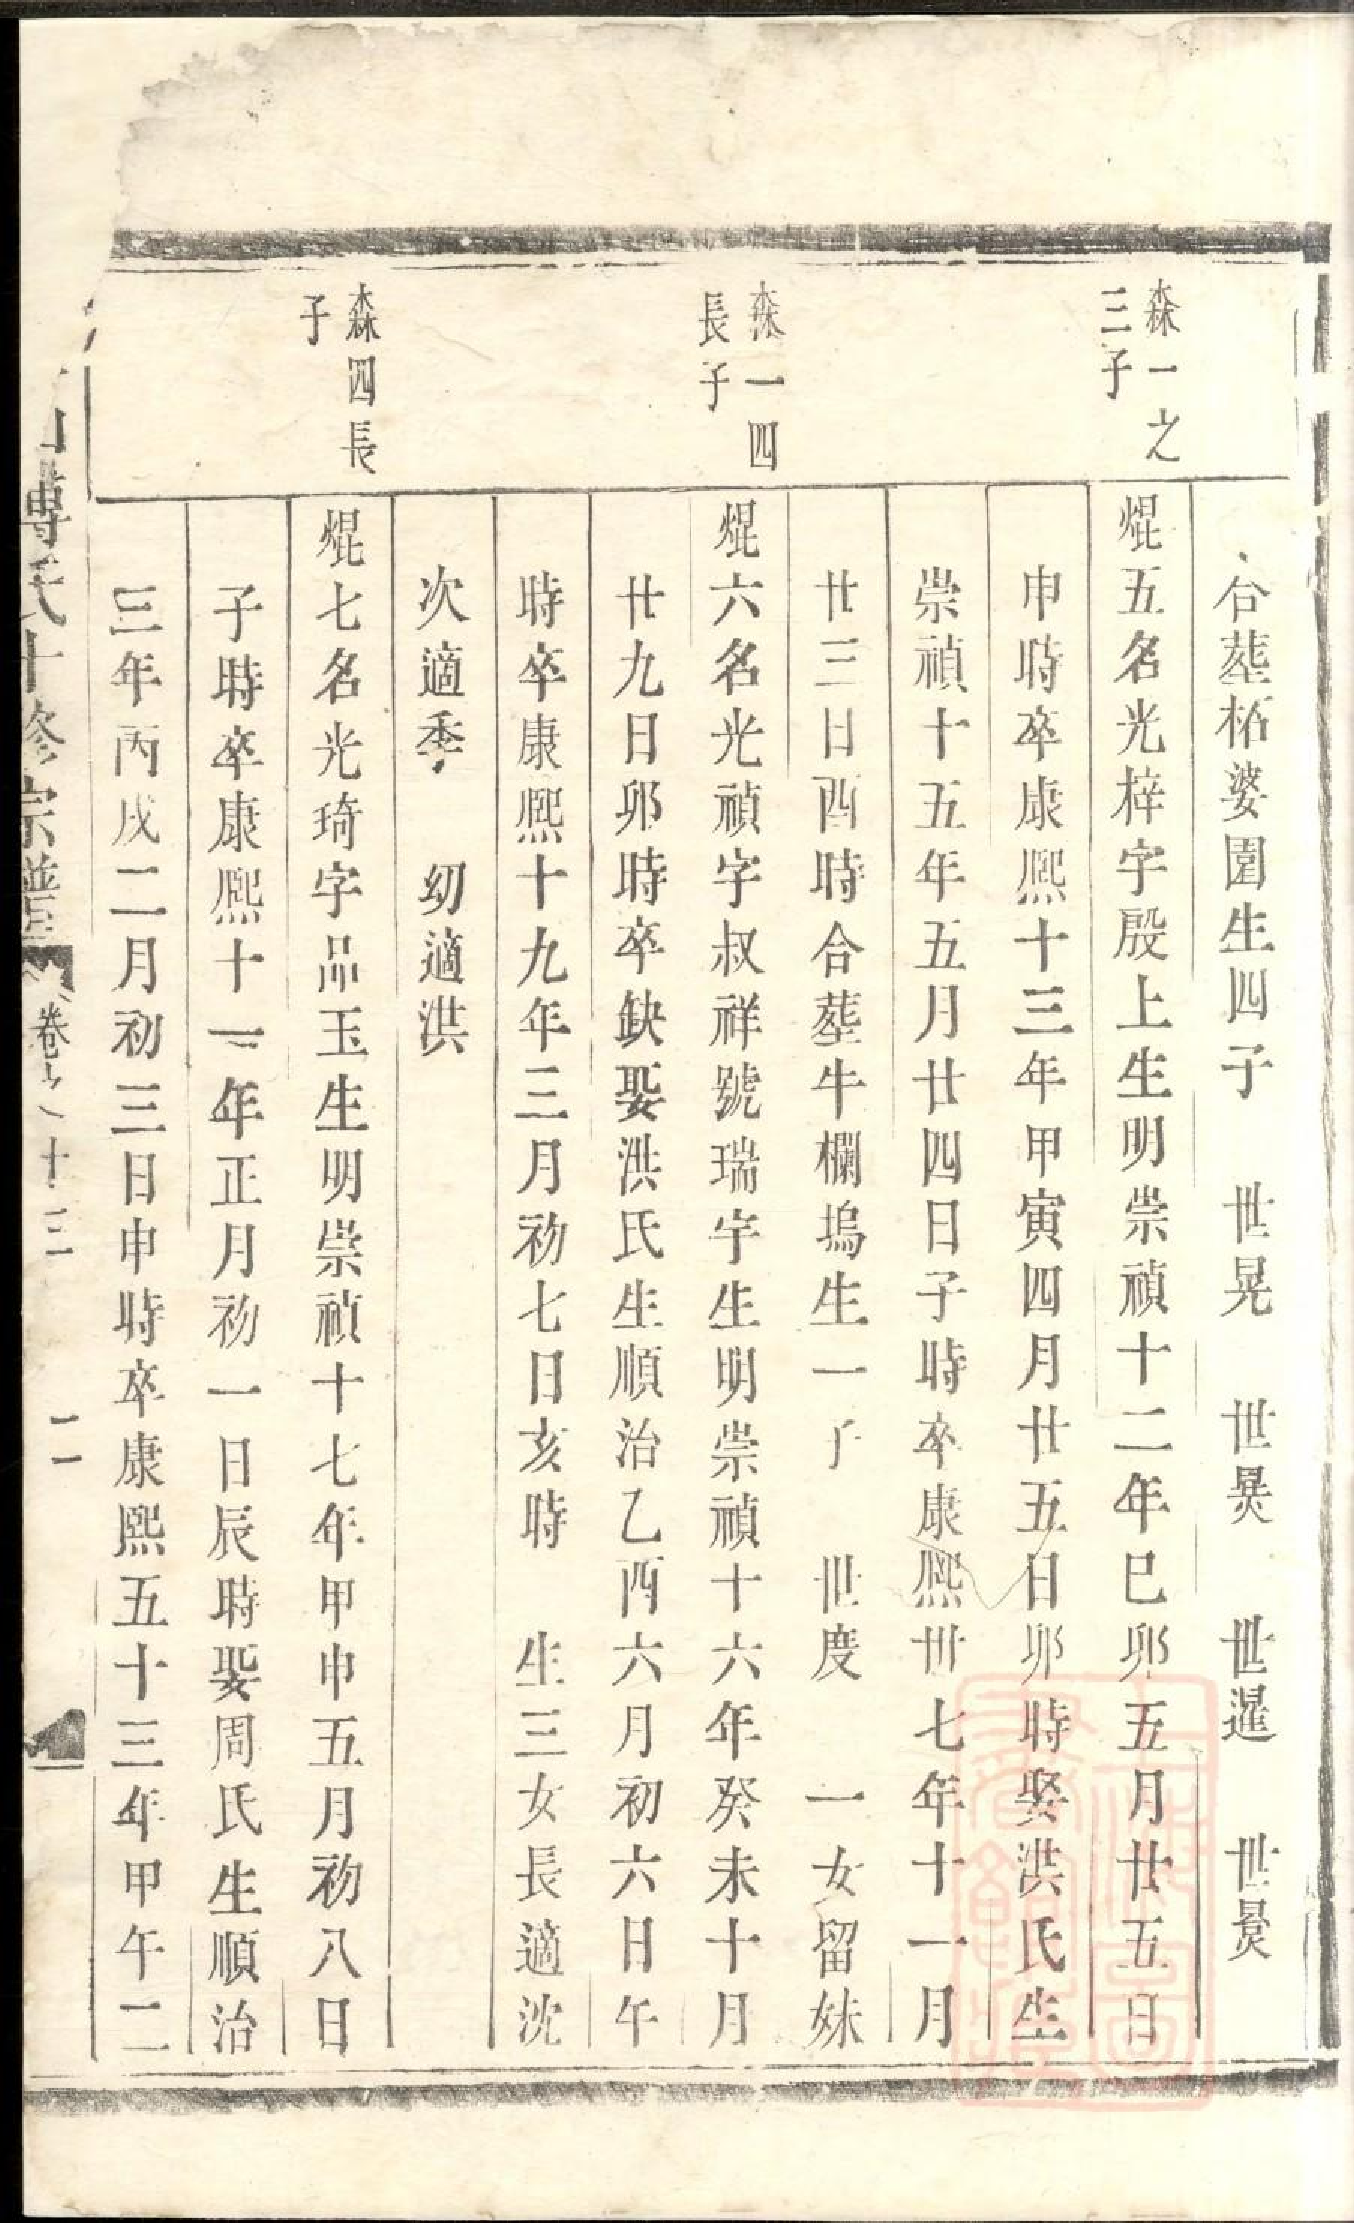 合塟栢婆園生四子　世晃　世㬌　世暹　世㬎
森一之
三子
焜五名光梓字殷上生明崇禎十二年巳卯五月廿五日
申時卒康熙十三年甲寅四月廿五日卯時娶洪氏生
崇禎十五年五月廿四日子時卒康熙卅七年十一月
廿三日酉時合塟牛欄塢生一子　世度　一女留妹
森一四
長子
焜六名光禎字叔祥號瑞宇生明崇禎十六年癸未十月
廿九日卯時卒缺娶洪氏生順治乙酉六月初六日午
時卒康熙十九年三月初七日亥時　生三女長適沈
次適季　幼適洪
森四長
子
焜七名光琦字品玉生明崇禎十七年甲申五月初八日
子時卒康熙十一年正月初一日辰時娶周氏生順治
三年丙戌二月初三日申時卒康熙五十三年甲午二
傅氏十修宗譜
卷之十三
二
上海圖書館藏